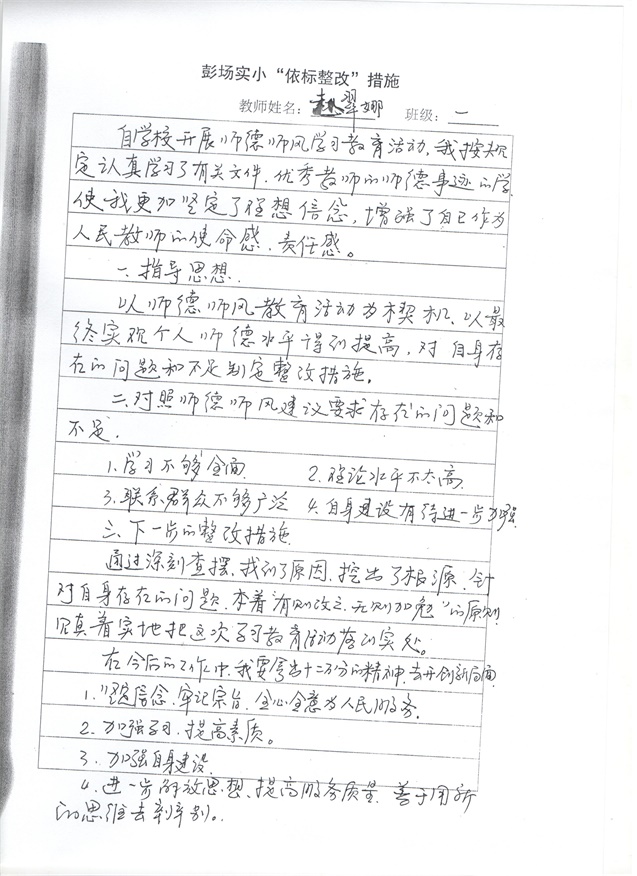 彭场实小“依标整改”措施
教师姓名：赵翠娜 班级：一
自学校开展师德师风学习教育活动，我按规
定认真学习了有关文件.优秀教师的师德事迹的学
使我更加坚定了理想信念，增强了自己作为
人民教师的使命感、责任感。
一.指导思想.
以师德师风教育活动为契机、以最
终实现个人师德水平得到提高，对自身存
在的问题和不足制定整改措施。
二.对照师德师风建议要求存在的问题和
不足.
1.学习不够全面 2.理论水平不太高.
3.联系群众不够广泛 4.自身建设有待进一步加强.
三、下一步的整改措施.
通过深刻查摆、找到了原因，挖出了根源.针
对自身存在的问题.本着“有则改之.无则加勉”的原则
认真着实地把这次学习教育活动落到实处。
在今后的工作中.我要拿出十二万分的精神.去开创新局面
1.坚定信念.牢记宗旨、全心全意为人民服务.
2.加强学习.提高素质。
3.加强自身建设.
4.进一步解放思想、提高服务质量.善于用新
的思维去判别。